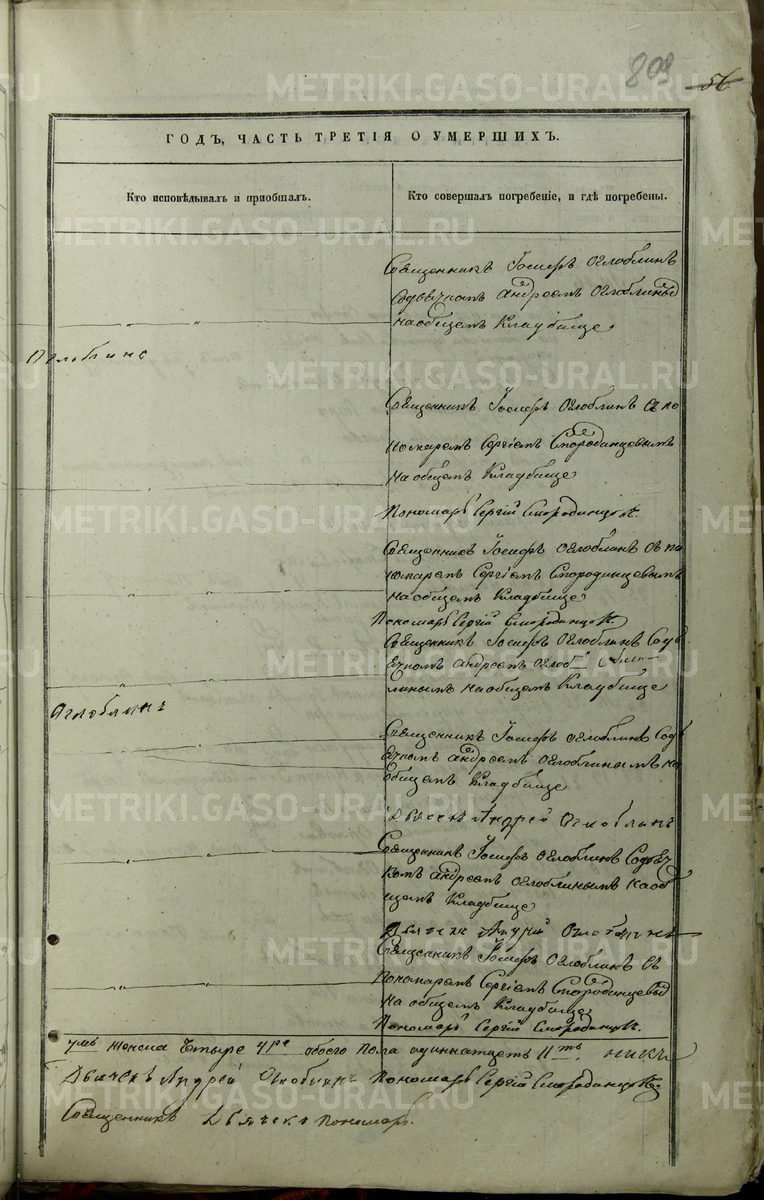 809
56
ГОДЪ, ЧАСТЬ ТРЕТІЯ О УМЕРШИХЪ.
Кто исповѣдывалъ и пріобщалъ.
Кто совершалъ погребеніе, и гдѣ погребены.
Священникъ Іосифъ Оглоблинъ
Содьячкомъ Андреемъ Оглоблинымъ
на общемъ Кладбище.
Оглоблинъ
Священникъ Іосифъ Оглоблинъ съ по
номаремъ Сергіемъ Смородинцевымъ
на общемъ Кладбище
Пономарь Сергій Смородинцовъ.
Священникъ Іосифъ Оглоблинъ съ по
номаремъ Сергіемъ Смородинцевымъ
на общемъ Кладбище
Пономарь Сергій Смородинцовъ
Священникъ Іосифъ Оглоблинъ Содь
ячкомъ Андреемъ Оглоб
линымъ на общемъ Кладбище
Оглоблинъ
Священникъ Іосифъ Оглоблинъ Содь
ячкомъ Андреемъ Оглоблинымъ на
общемъ Кладбище
Дьячекъ Андрей Оглоблинъ
Священникъ Іосифъ Оглоблинъ Содьяч
комъ Андреемъ Оглоблинымъ на об
щемъ Кладбище
Дьячекъ Андрей Оглоблинъ
Священникъ Іосифъ Оглоблинъ съ
Пономаремъ Сергіемъ Смородинцевым
на общемъ Кладбище
Пономарь Сергій Смородинцовъ.
женска Четыре 4ре обоего пола одиннатцеть 11ть
Дьячекъ Андрей Оглоблинъ Пономарь Сергій Смородинцовъ
Священникъ Дьячекъ Пономарь.
METRIKI.GASO-URAL.RU